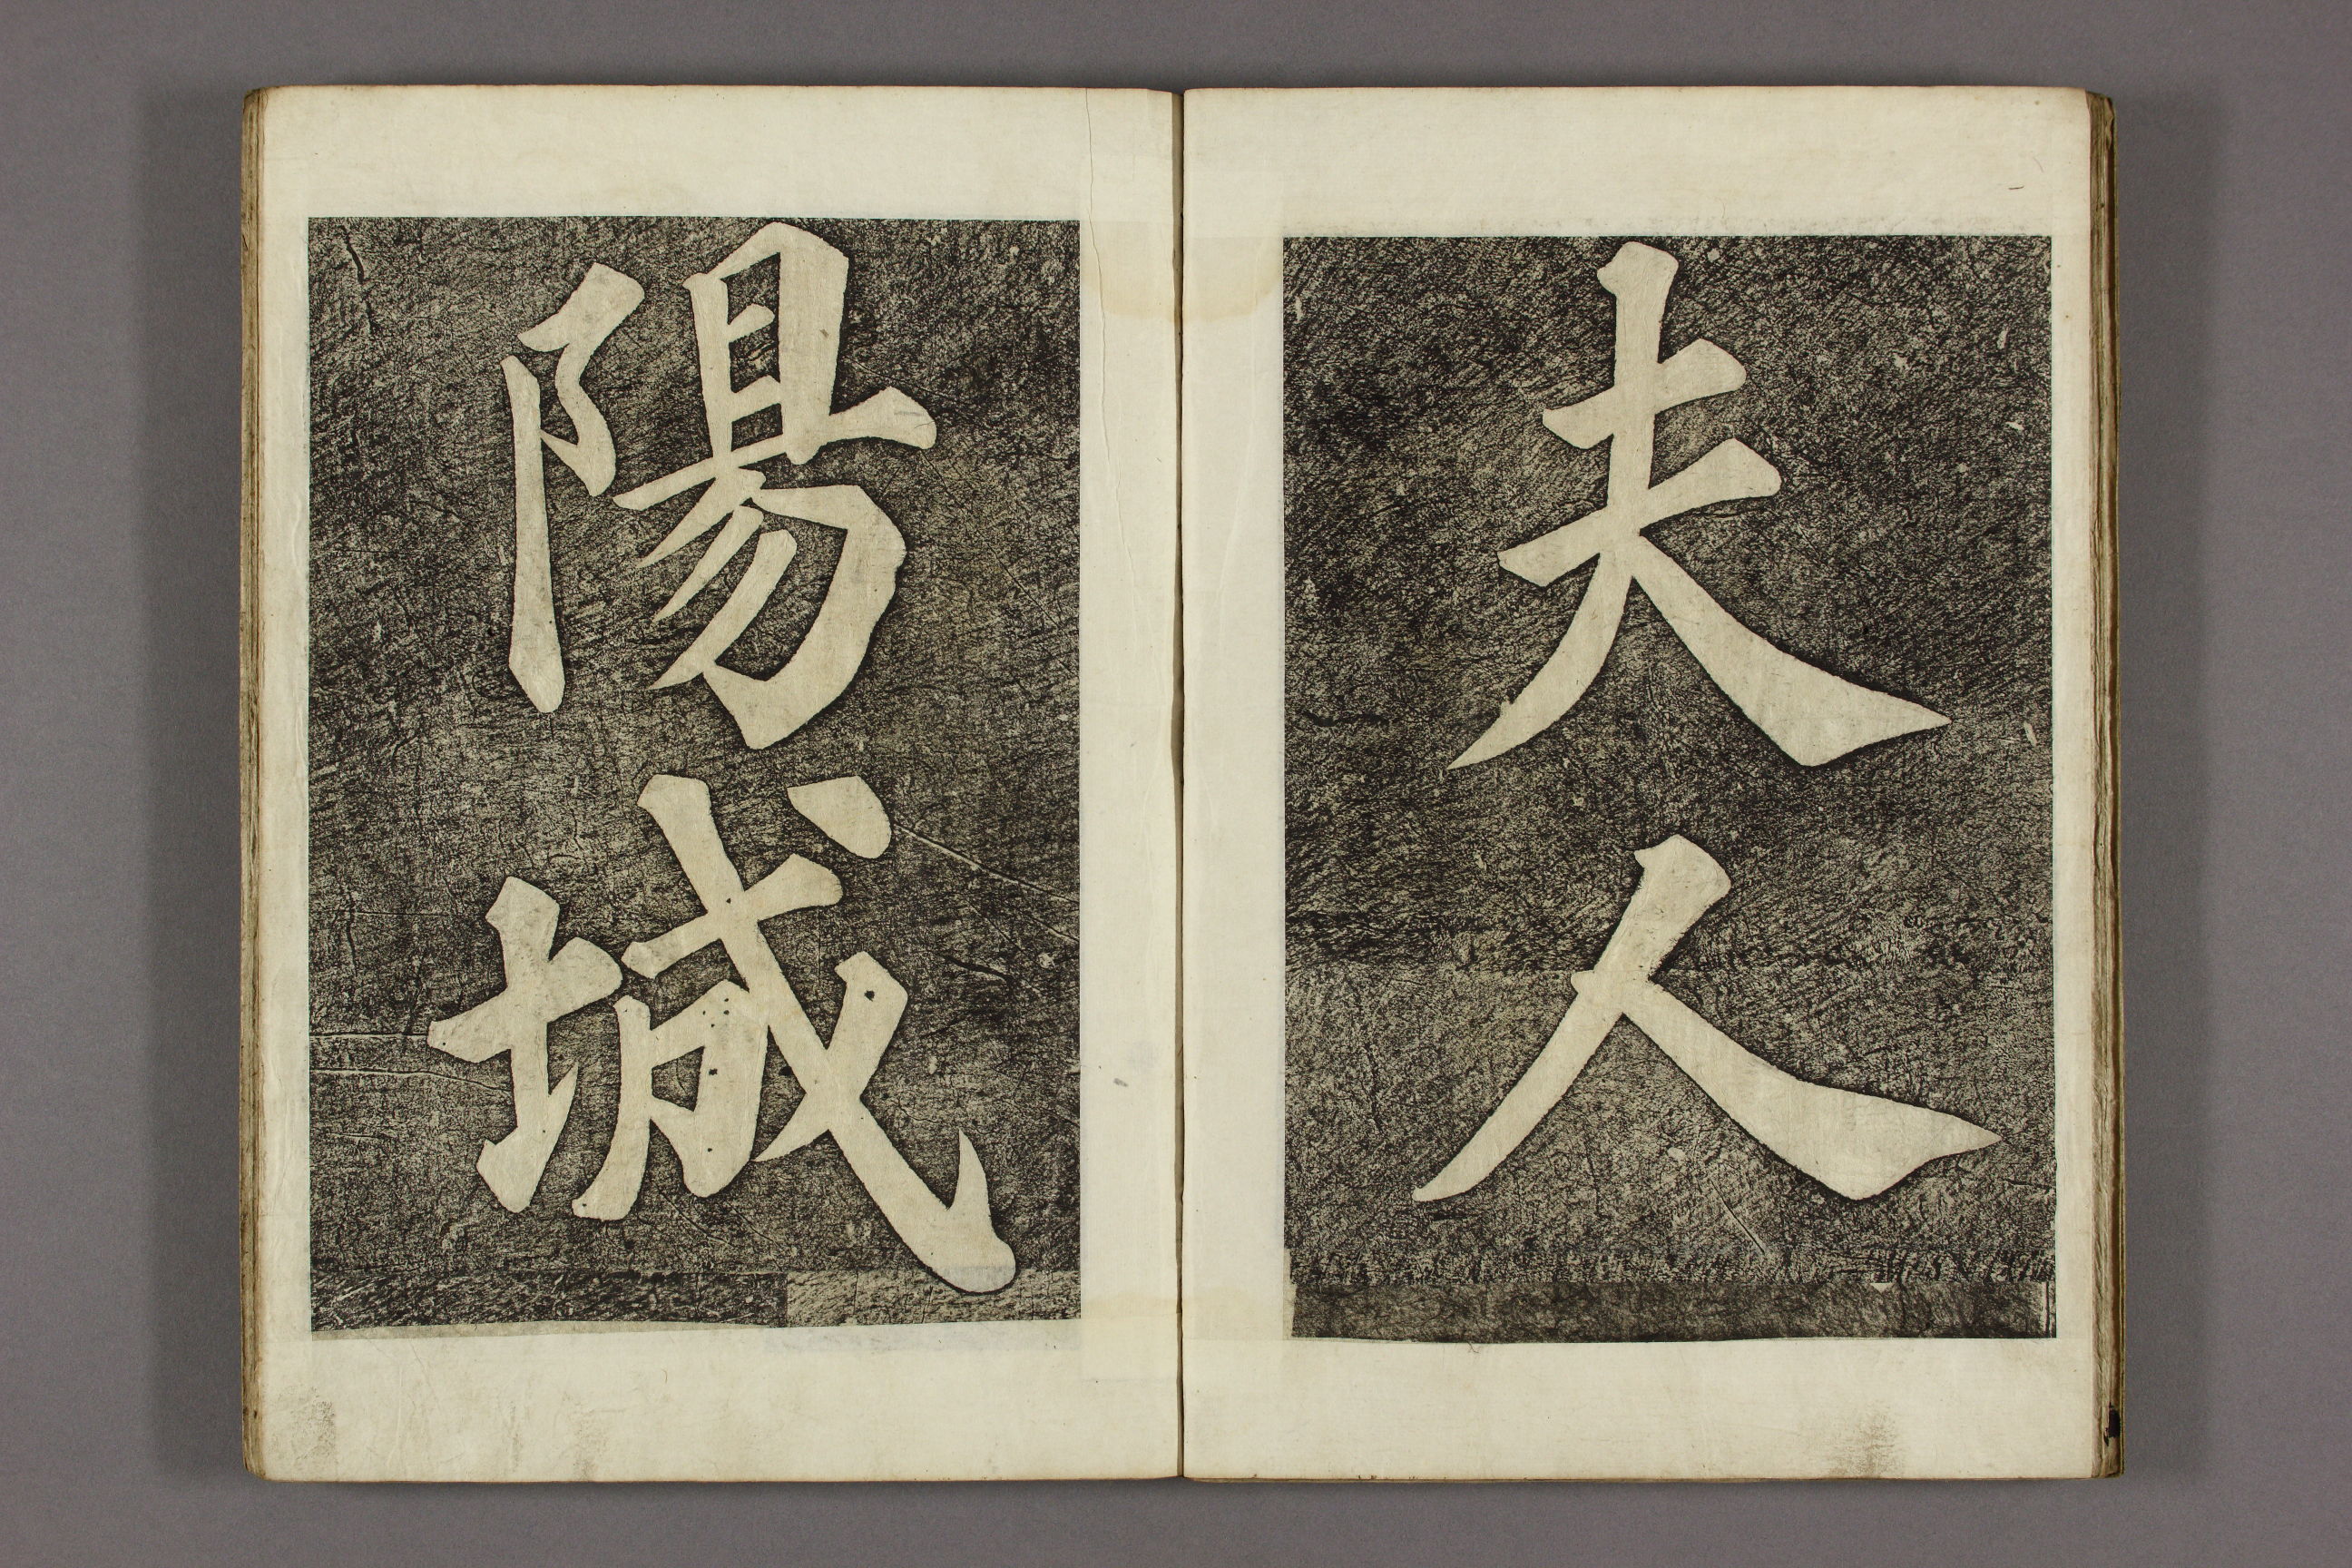 夫人
陽城